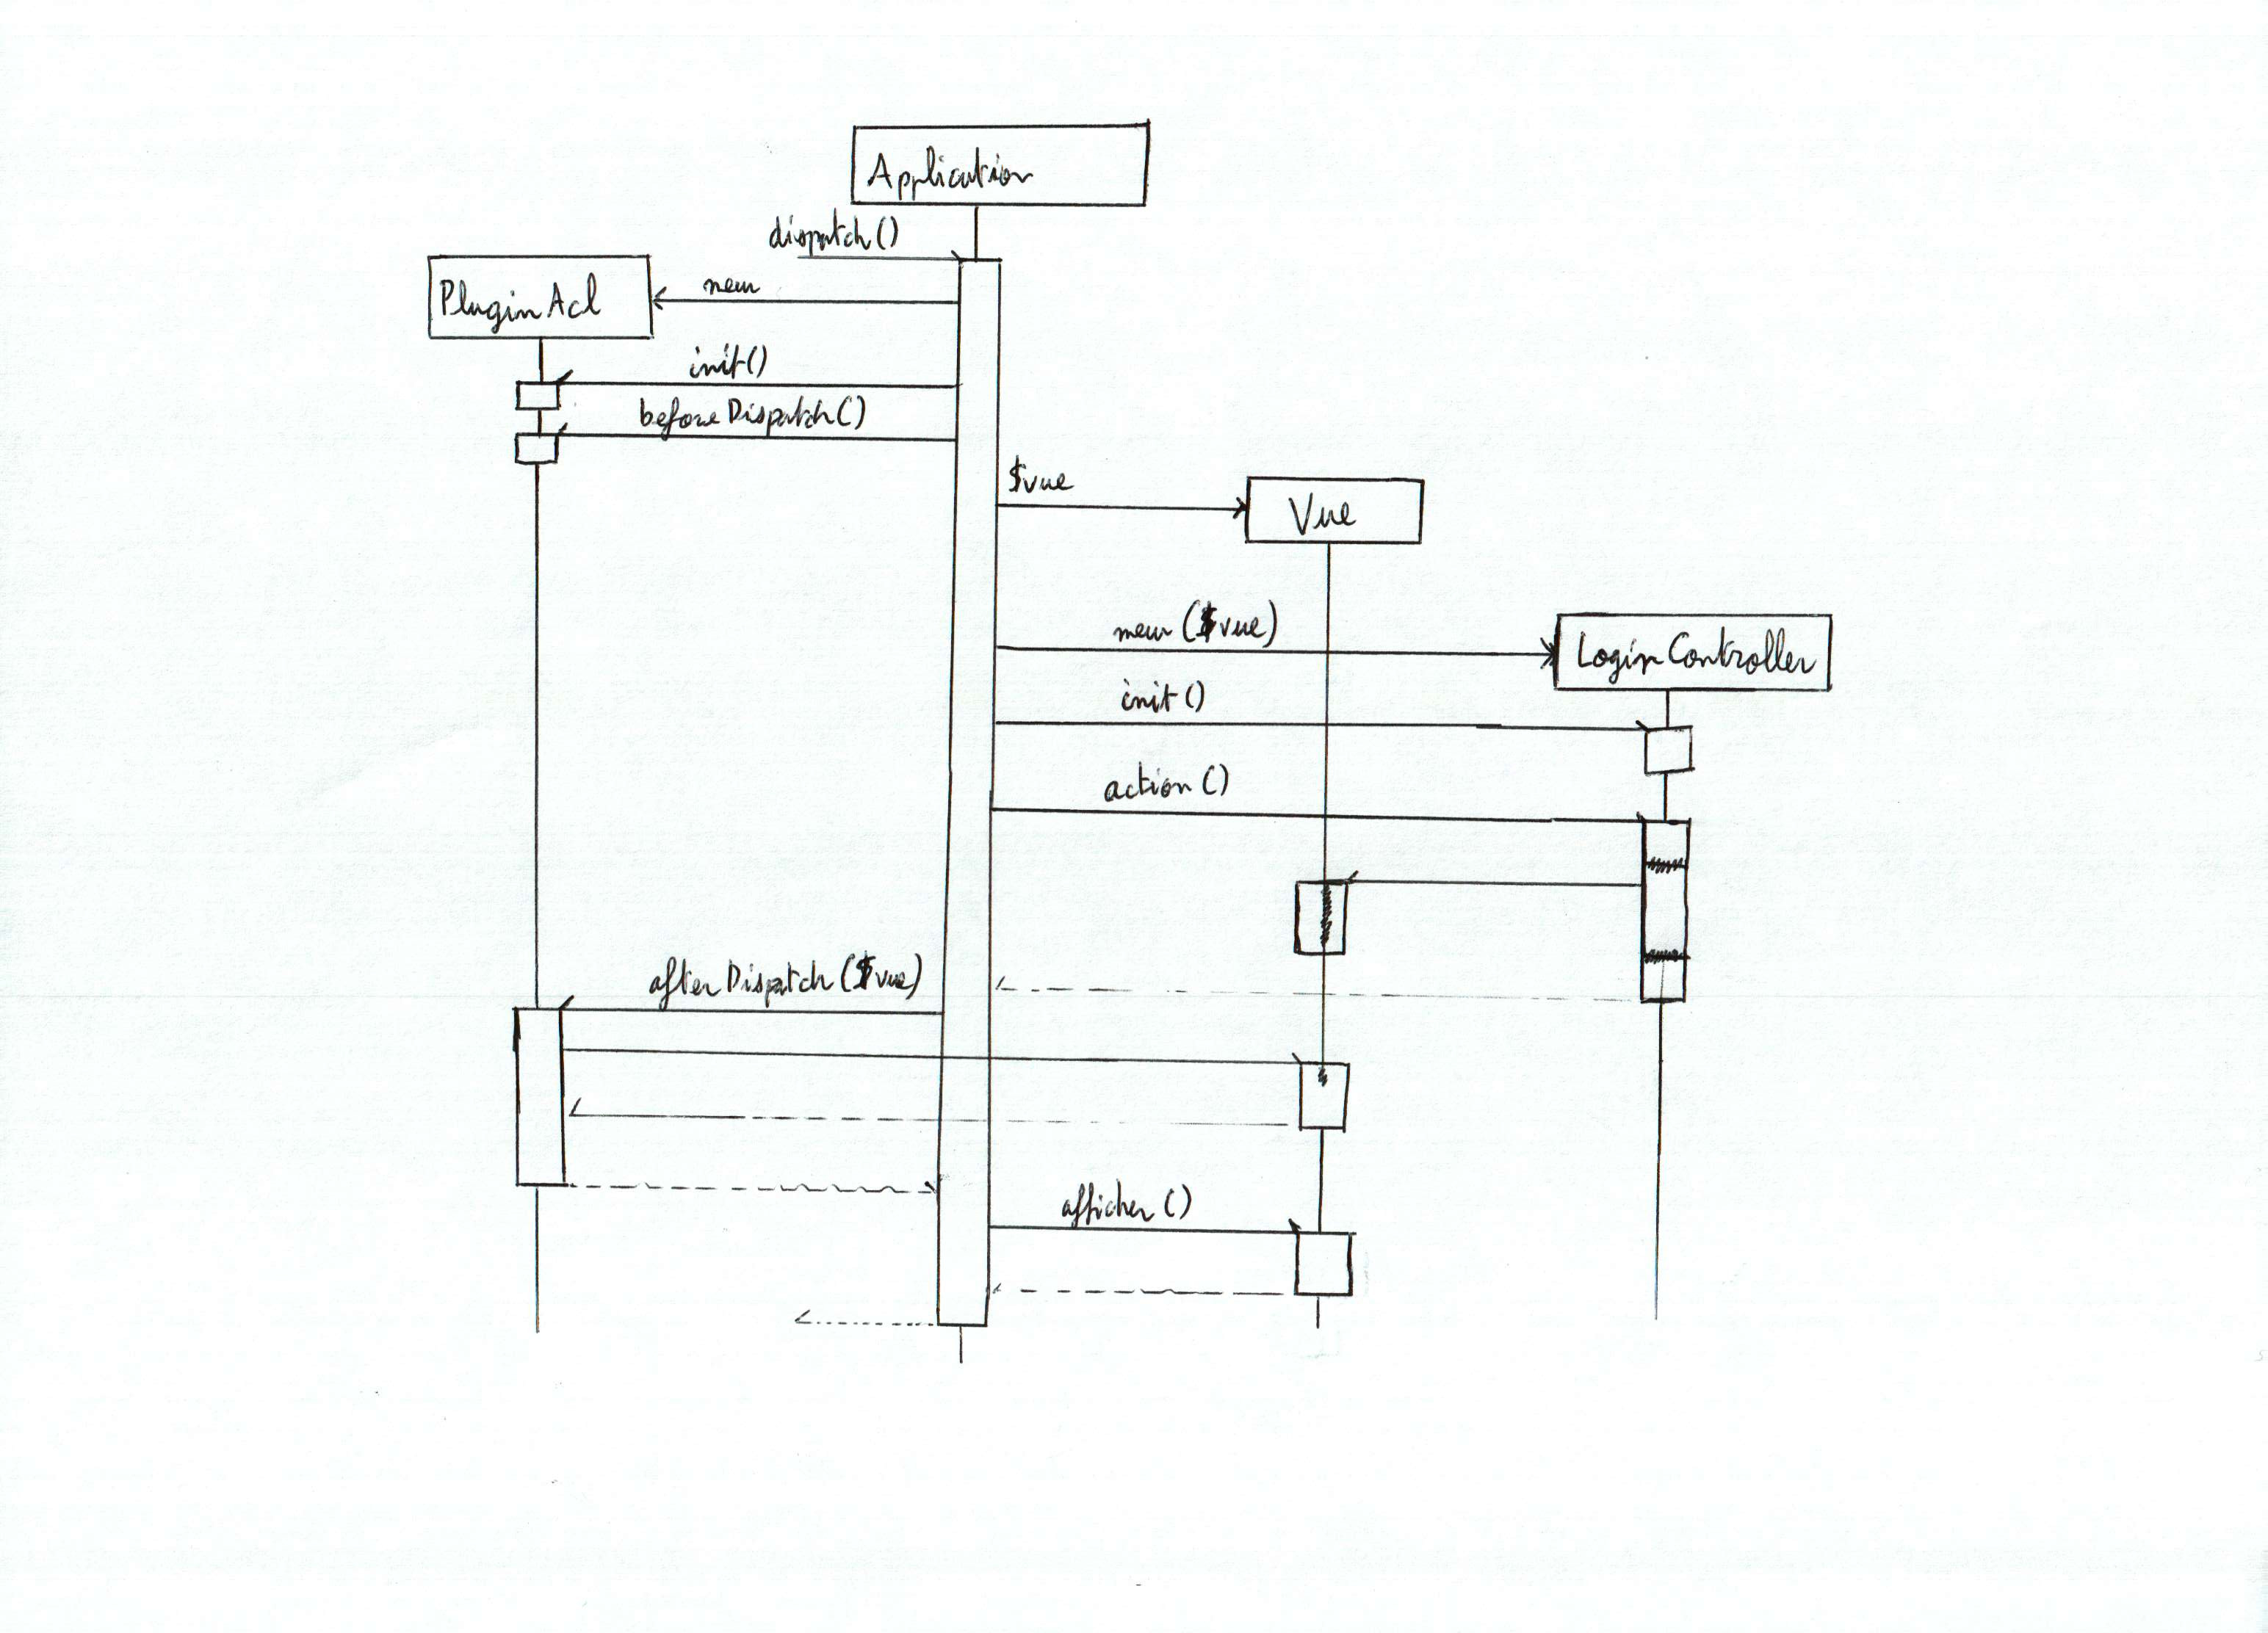 Application
dispatch()
new
PluginAcl
init()
beforeDispatch()
$vue
Vue
new ($vue)
LoginController
init()
action()
afterDispatch($vue)
afficher()